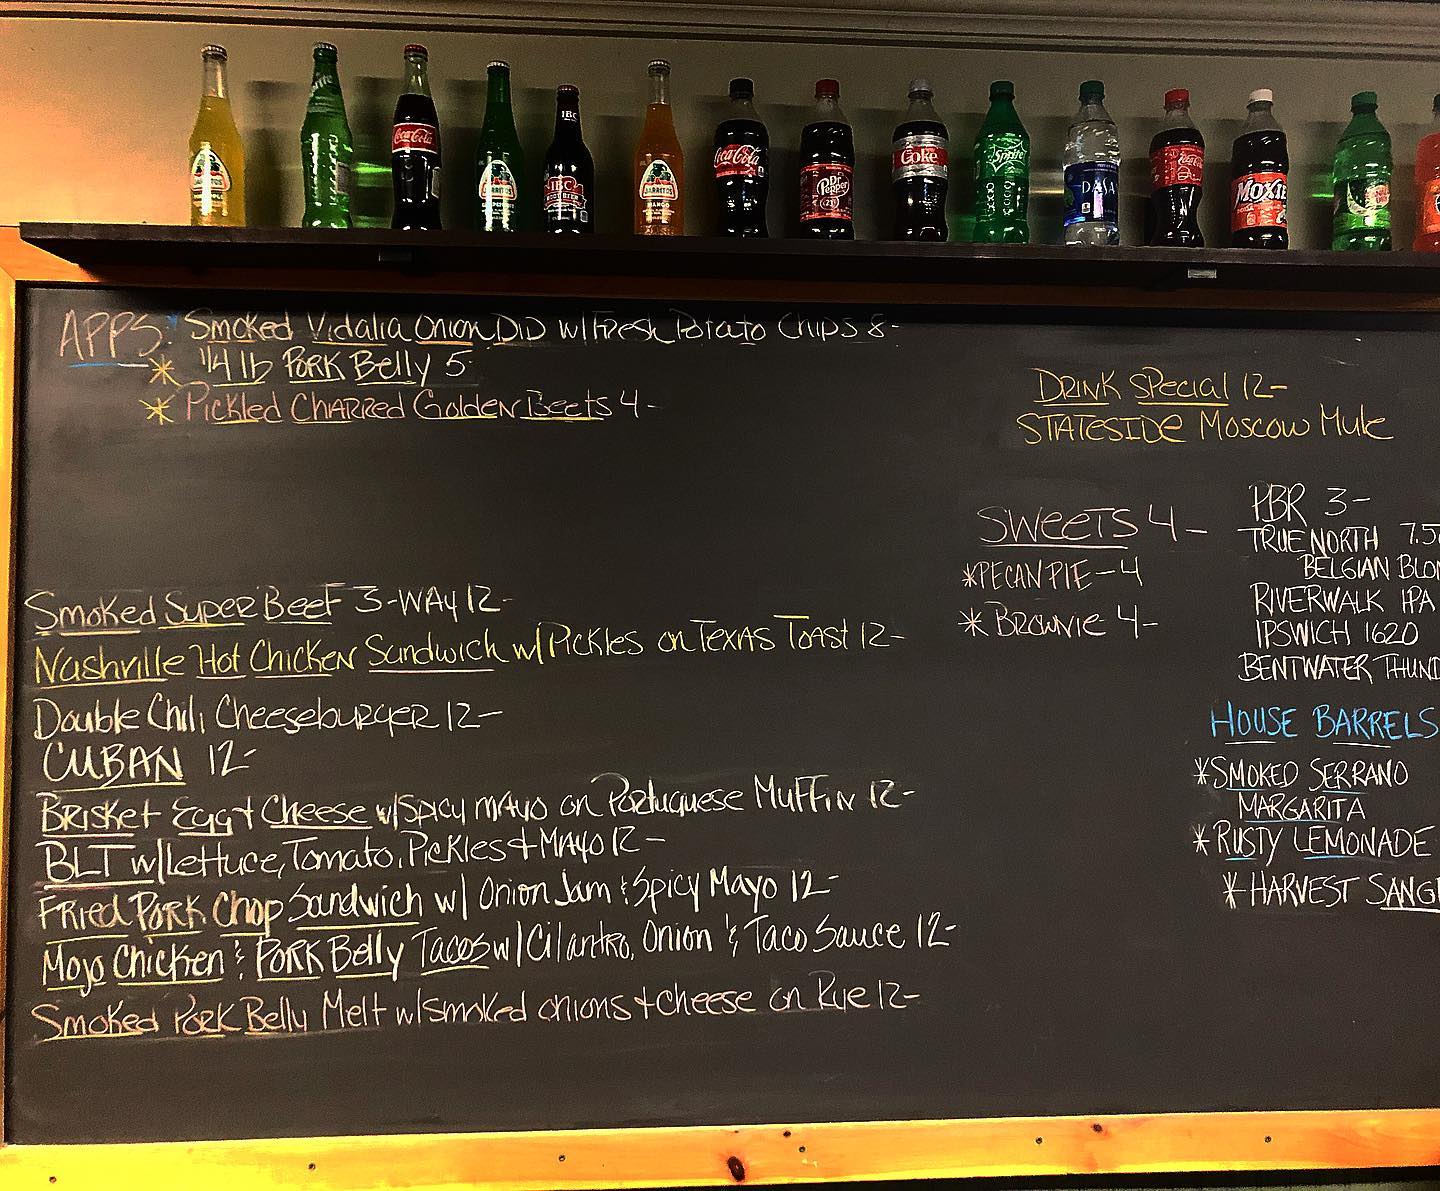 Sprite
Coca-Cola
JARRITOS
JARRITOS
IBC
IBC
ROOT BEER
JARRITOS
MANGO
Coca-Cola
Dr Pepper
23
Coke
Sprite
DASA
Coca-Cola
MOXIE
APPS: Smoked Vidalia Onion DiD w/Fresh Potato Chips 8-
* 1/4 lb Pork Belly 5-
* Pickled Charred Golden Beets 4-
Smoked Super Beef 3-Way 12-
Nashville Hot Chicken Sandwich w/Pickles on Texas Toast 12-
Double Chili Cheeseburger 12-
CUBAN 12-
Brisket Egg + Cheese w/Spicy mayo on Portuguese Muffin 12-
BLT w/Lettuce, Tomato, Pickles + Mayo 12-
Fried Pork Chop Sandwich w/ Onion Jam & Spicy Mayo 12-
Mojo Chicken & Pork Belly Tacos w/Cilantro, Onion & Taco Sauce 12-
Smoked Pork Belly Melt w/smoked onions + cheese on Rye 12-
Drink Special 12-
STATESIDE Moscow Mule
SWEETS 4-
*PECAN PIE-4
*Brownie 4-
PBR 3-
TRUE NORTH 7.5
BELGIAN BLON
RIVERWALK IPA
IPSWICH 1620
BENTWATER THUND
HOUSE BARRELS
*SMOKED SERRANO
MARGARITA
*RUSTY LEMONADE
*HARVEST SANG